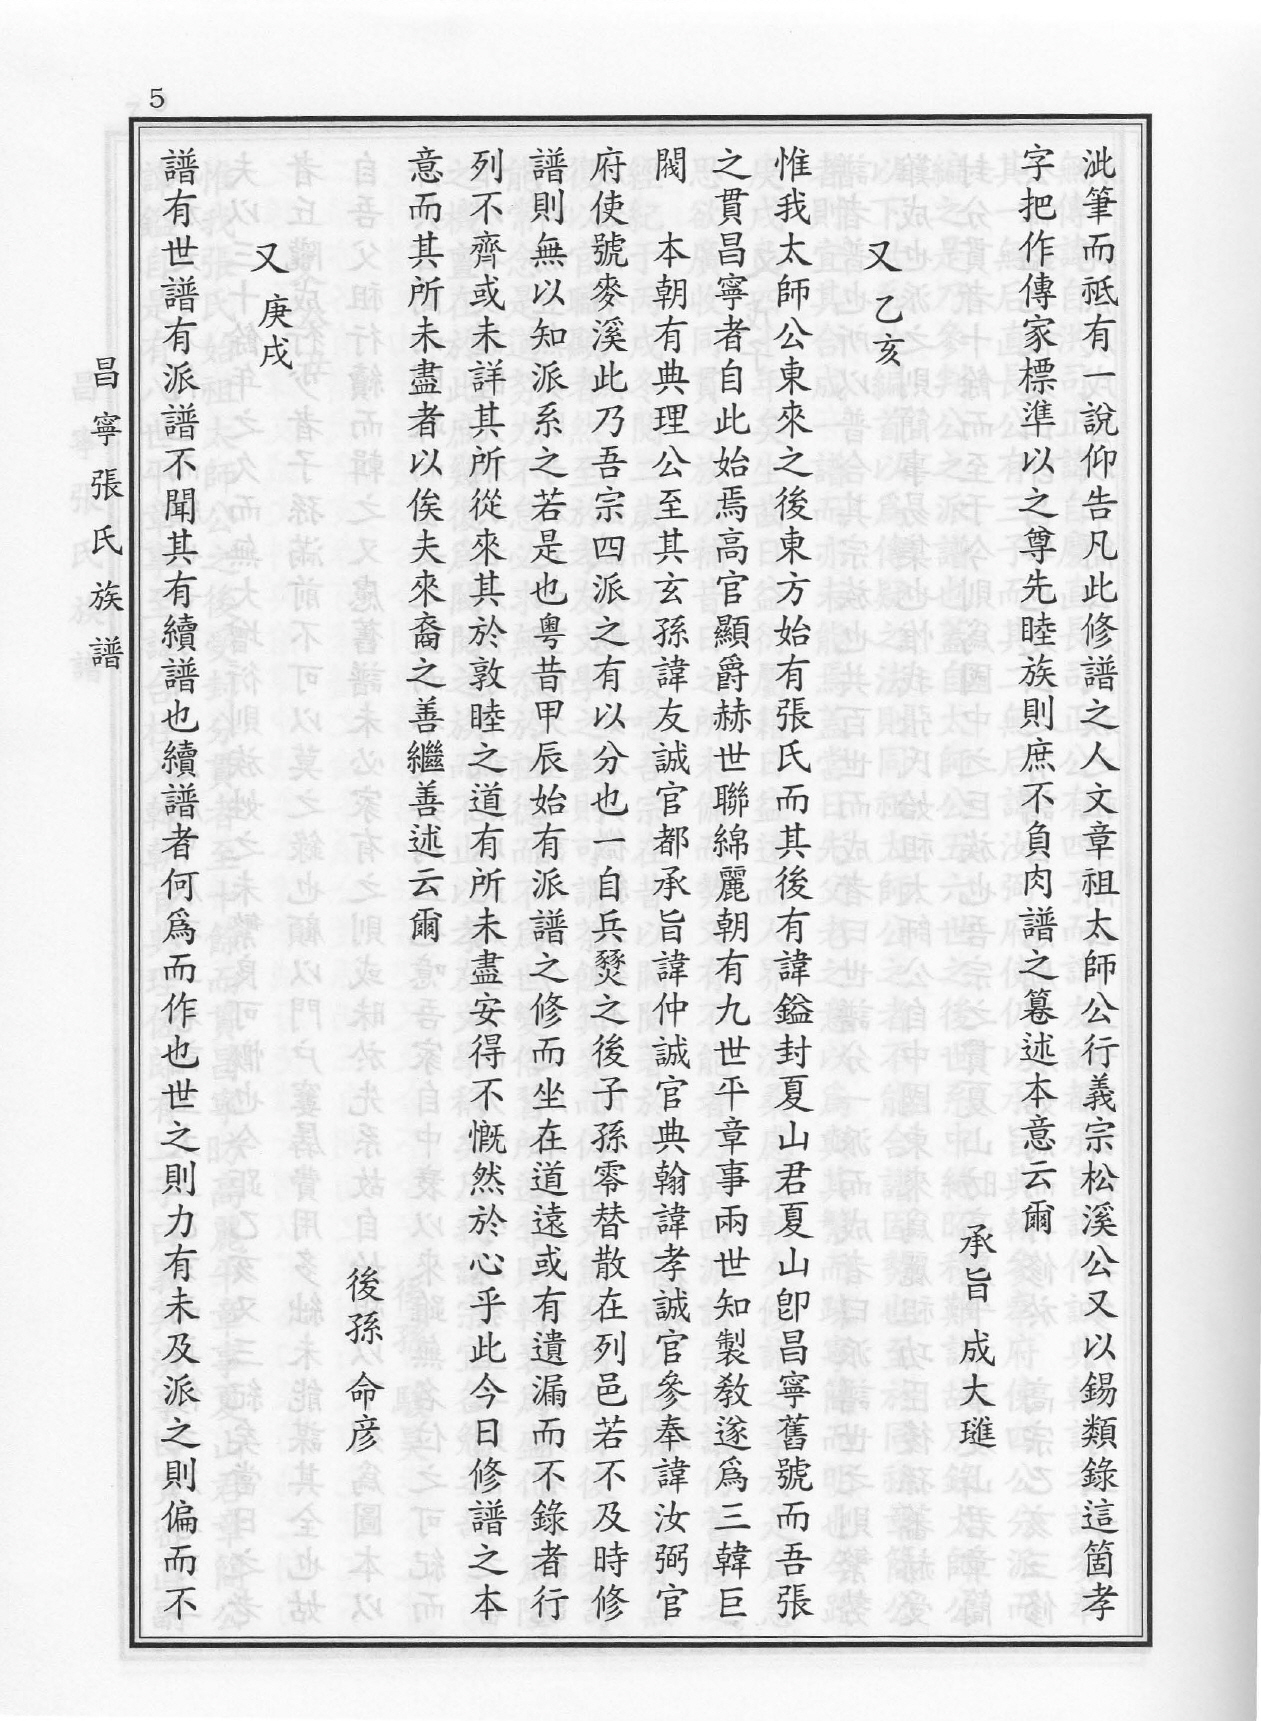 泚筆而祗有一說仰告凡此修譜之人文章祖太師公行義宗松溪公又以錫類錄這箇孝
字把作傳家標準以之尊先睦族則庶不負肉譜之篹述本意云爾
承旨 成大璡
又 乙亥
惟我太師公東來之後東方始有張氏而其後有諱鎰封夏山君夏山卽昌寧舊號而吾張
之貫昌寧者自此始焉高官顯爵赫世聯綿麗朝有九世平章事兩世知製敎遂爲三韓巨
閥 本朝有典理公至其玄孫諱友誠官都承旨諱仲誠官典翰諱孝誠官參奉諱汝弼官
府使號麥溪此乃吾宗四派之有以分也一自兵燹之後子孫零替散在列邑若不及時修
譜則無以知派系之若是也粤昔甲辰始有派譜之修而坐在道遠或有遺漏而不錄者行
列不齊或未詳其所從來其於敦睦之道有所未盡安得不慨然於心乎此今日修譜之本
意而其所未盡者以俟夫來裔之善繼善述云爾
後孫 命彦
又 庚戌
譜有世譜有派譜不聞其有續譜也續譜者何爲而作也世之則力有未及派之則偏而不
昌寧張氏族譜
5